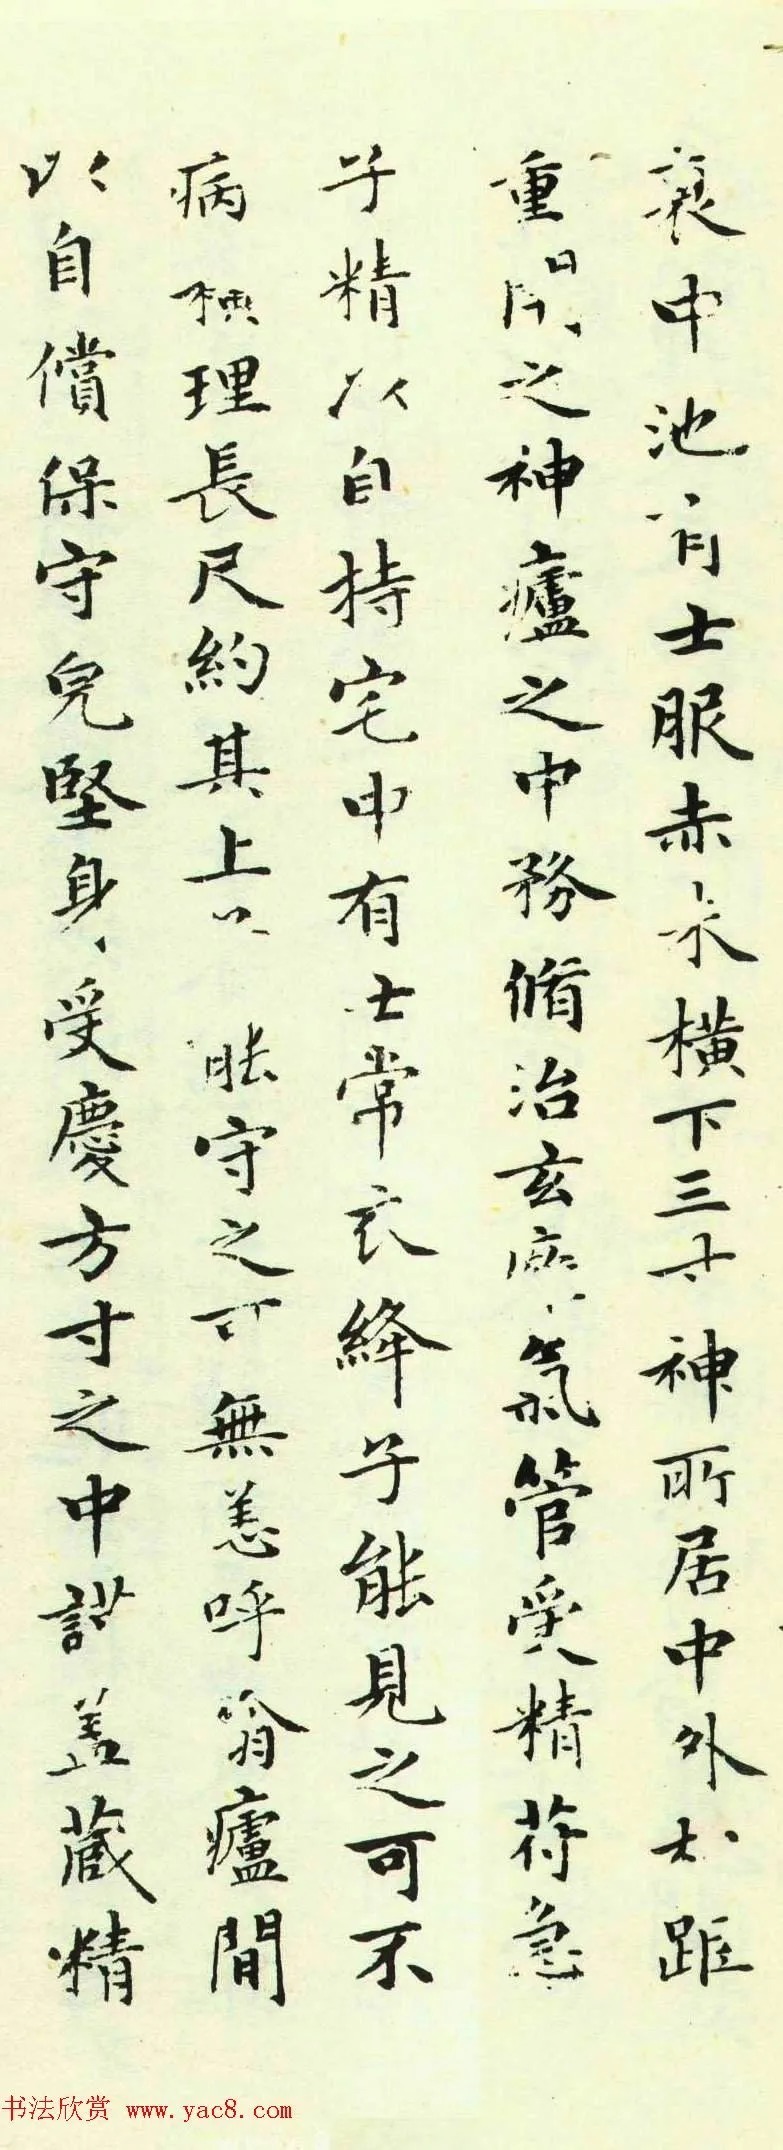 衰中池有士服赤朱橫下三寸神所居中外相距
重閉之神廬之中務脩治玄膺氣管受精苻急
子精以自持宅中有士常衣絳子能見之可不
病橫理長尺約其上 能守之可無恙呼噏廬間
以自償保守皃堅身受慶方寸之中謹蓋藏精
书法欣赏 www.yac8.com